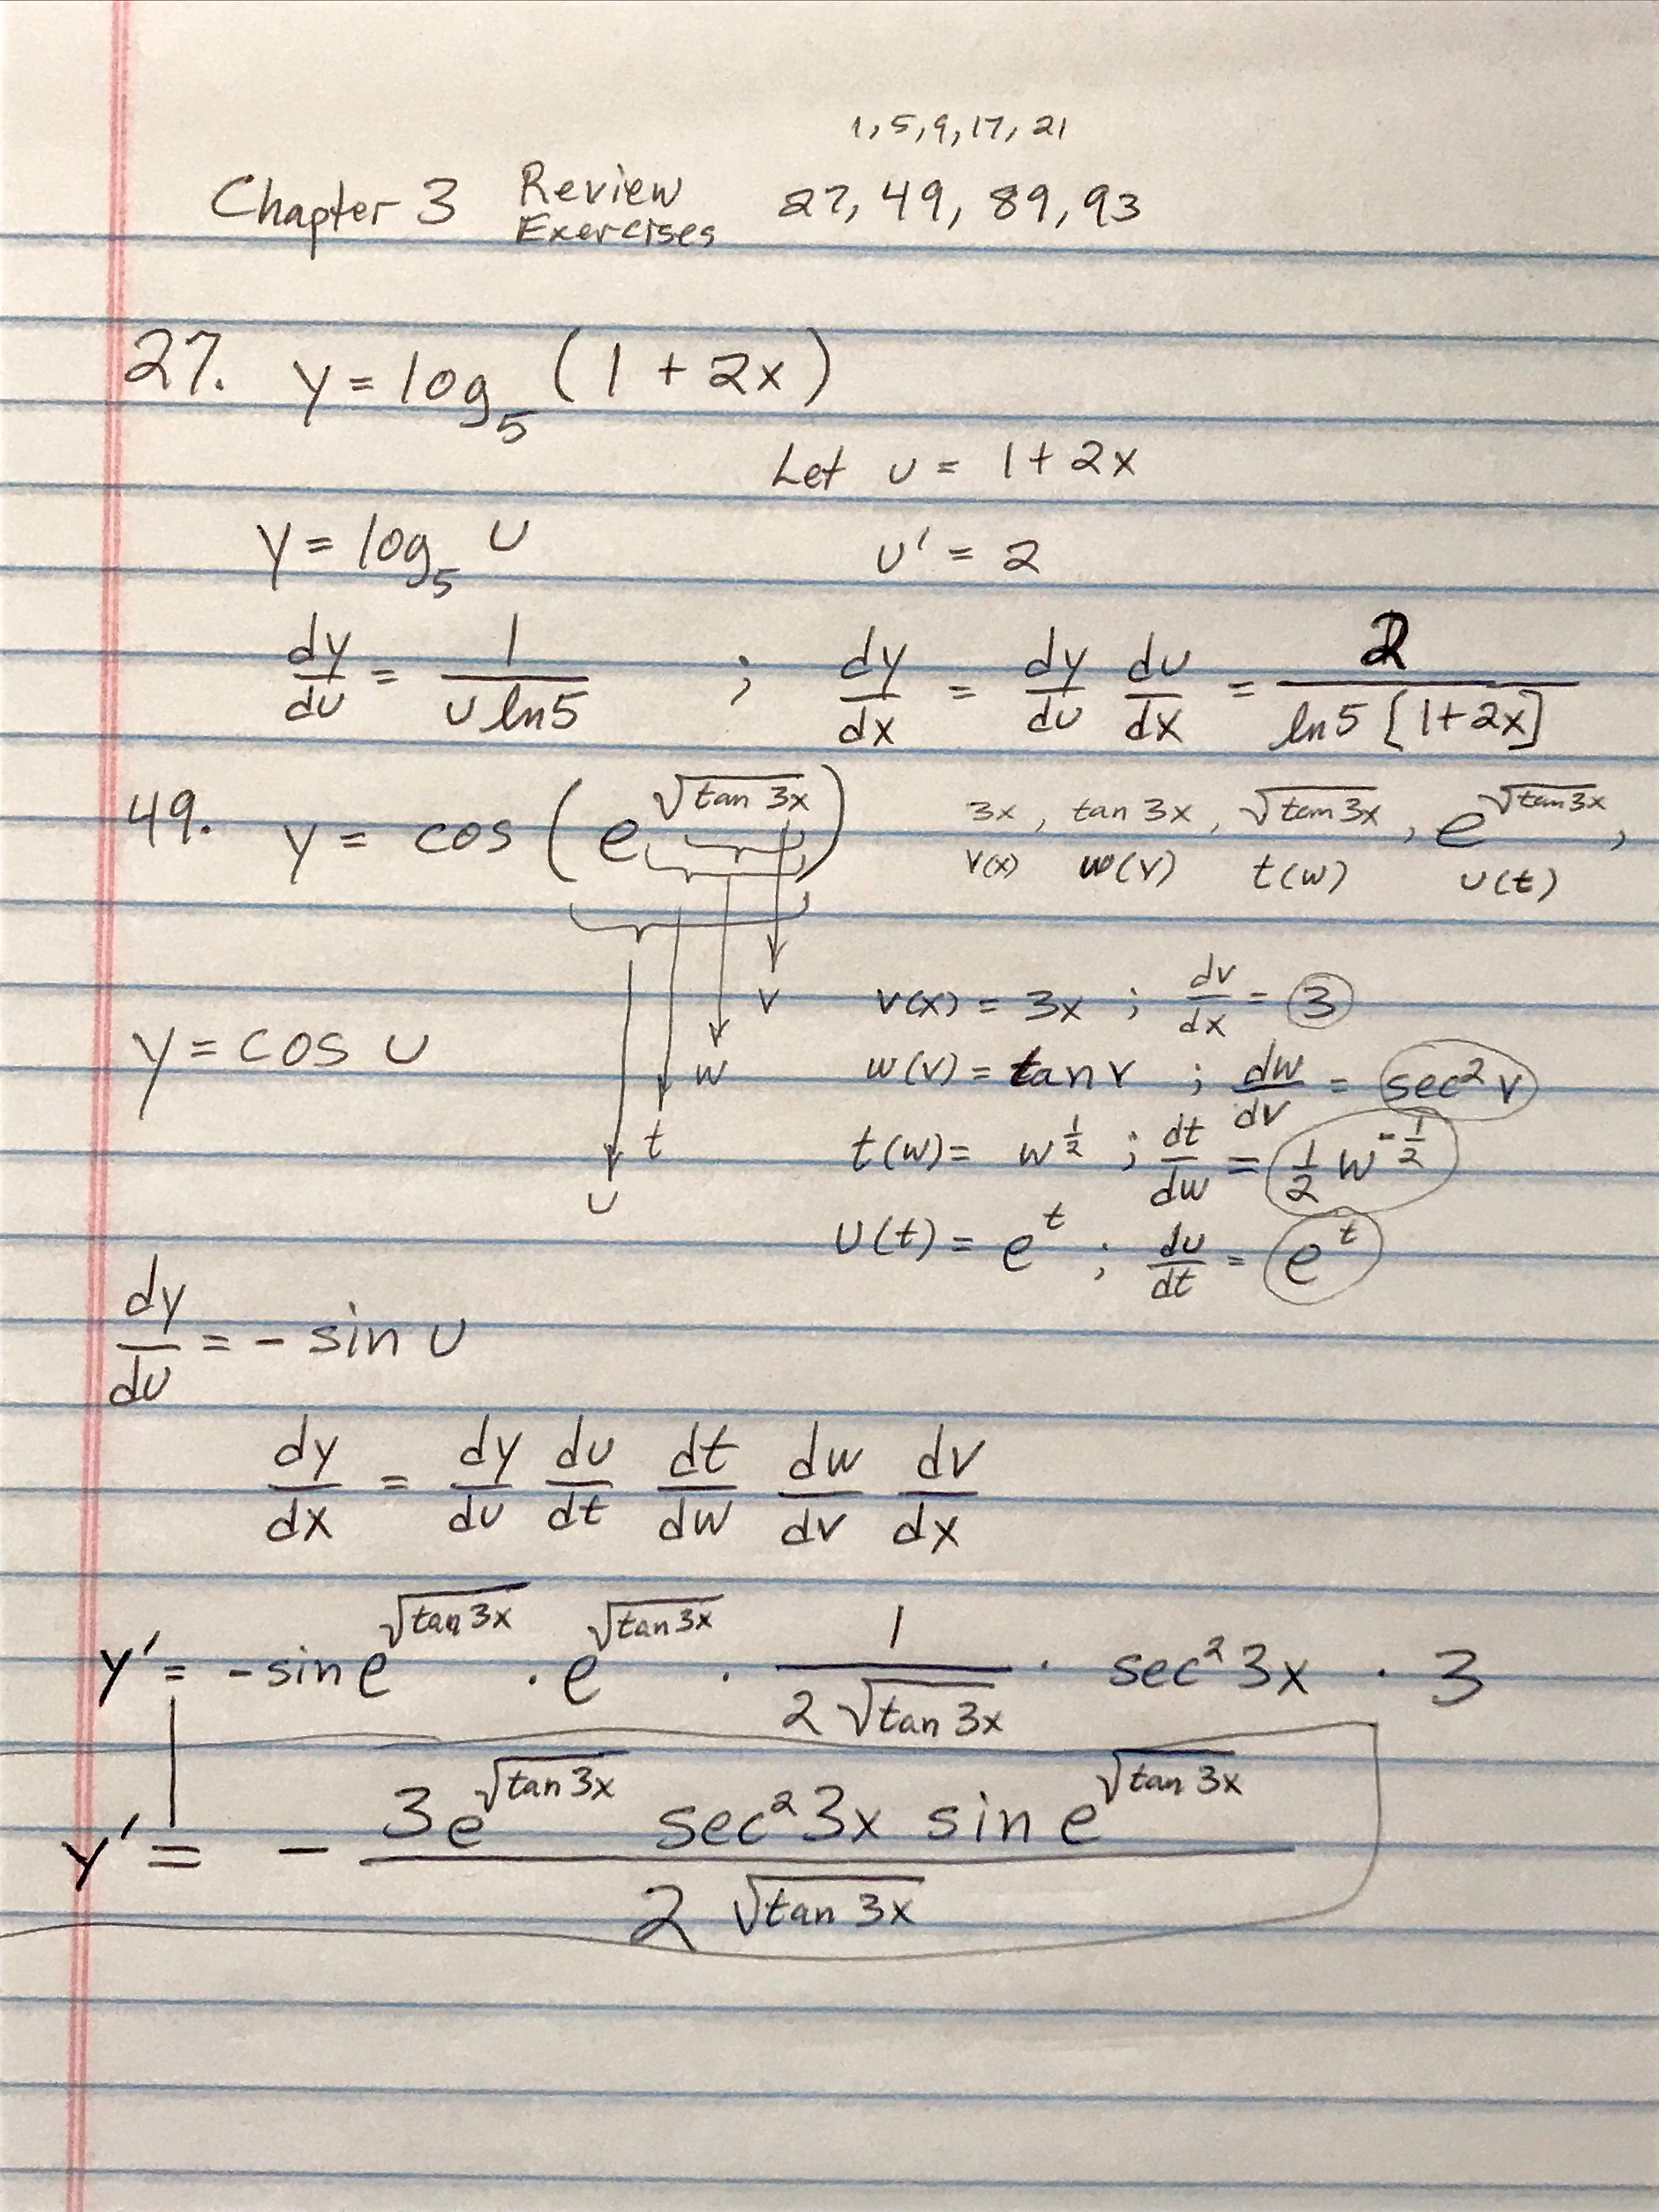 1, 5, 9, 17, 21
Chapter 3 Review Exercises 27, 49, 89, 93
27. y = log₅ (1 + 2x)
Let u = 1 + 2x
y = log₅ u
u' = 2
dy/du = 1/(u ln5) ; dy/dx = dy/du du/dx = 2/(ln5 [1+2x])
49. y = cos (e^√(tan 3x))
3x, tan 3x, √(tan 3x), e^√(tan 3x),
v(x) w(v) t(w) u(t)
v
w
t
u
v(x) = 3x ; dv/dx = 3
y = cos u
w(v) = tan v ; dw/dv = sec² v
t(w) = w^(1/2) ; dt/dw = 1/2 w^(-1/2)
u(t) = e^t ; du/dt = e^t
dy/du = - sin u
dy/dx = dy/du du/dt dt/dw dw/dv dv/dx
y' = -sin e^√(tan 3x) · e^√(tan 3x) · 1/(2√(tan 3x)) · sec² 3x · 3
y' = - (3e^√(tan 3x) sec² 3x sin e^√(tan 3x))/(2 √(tan 3x))